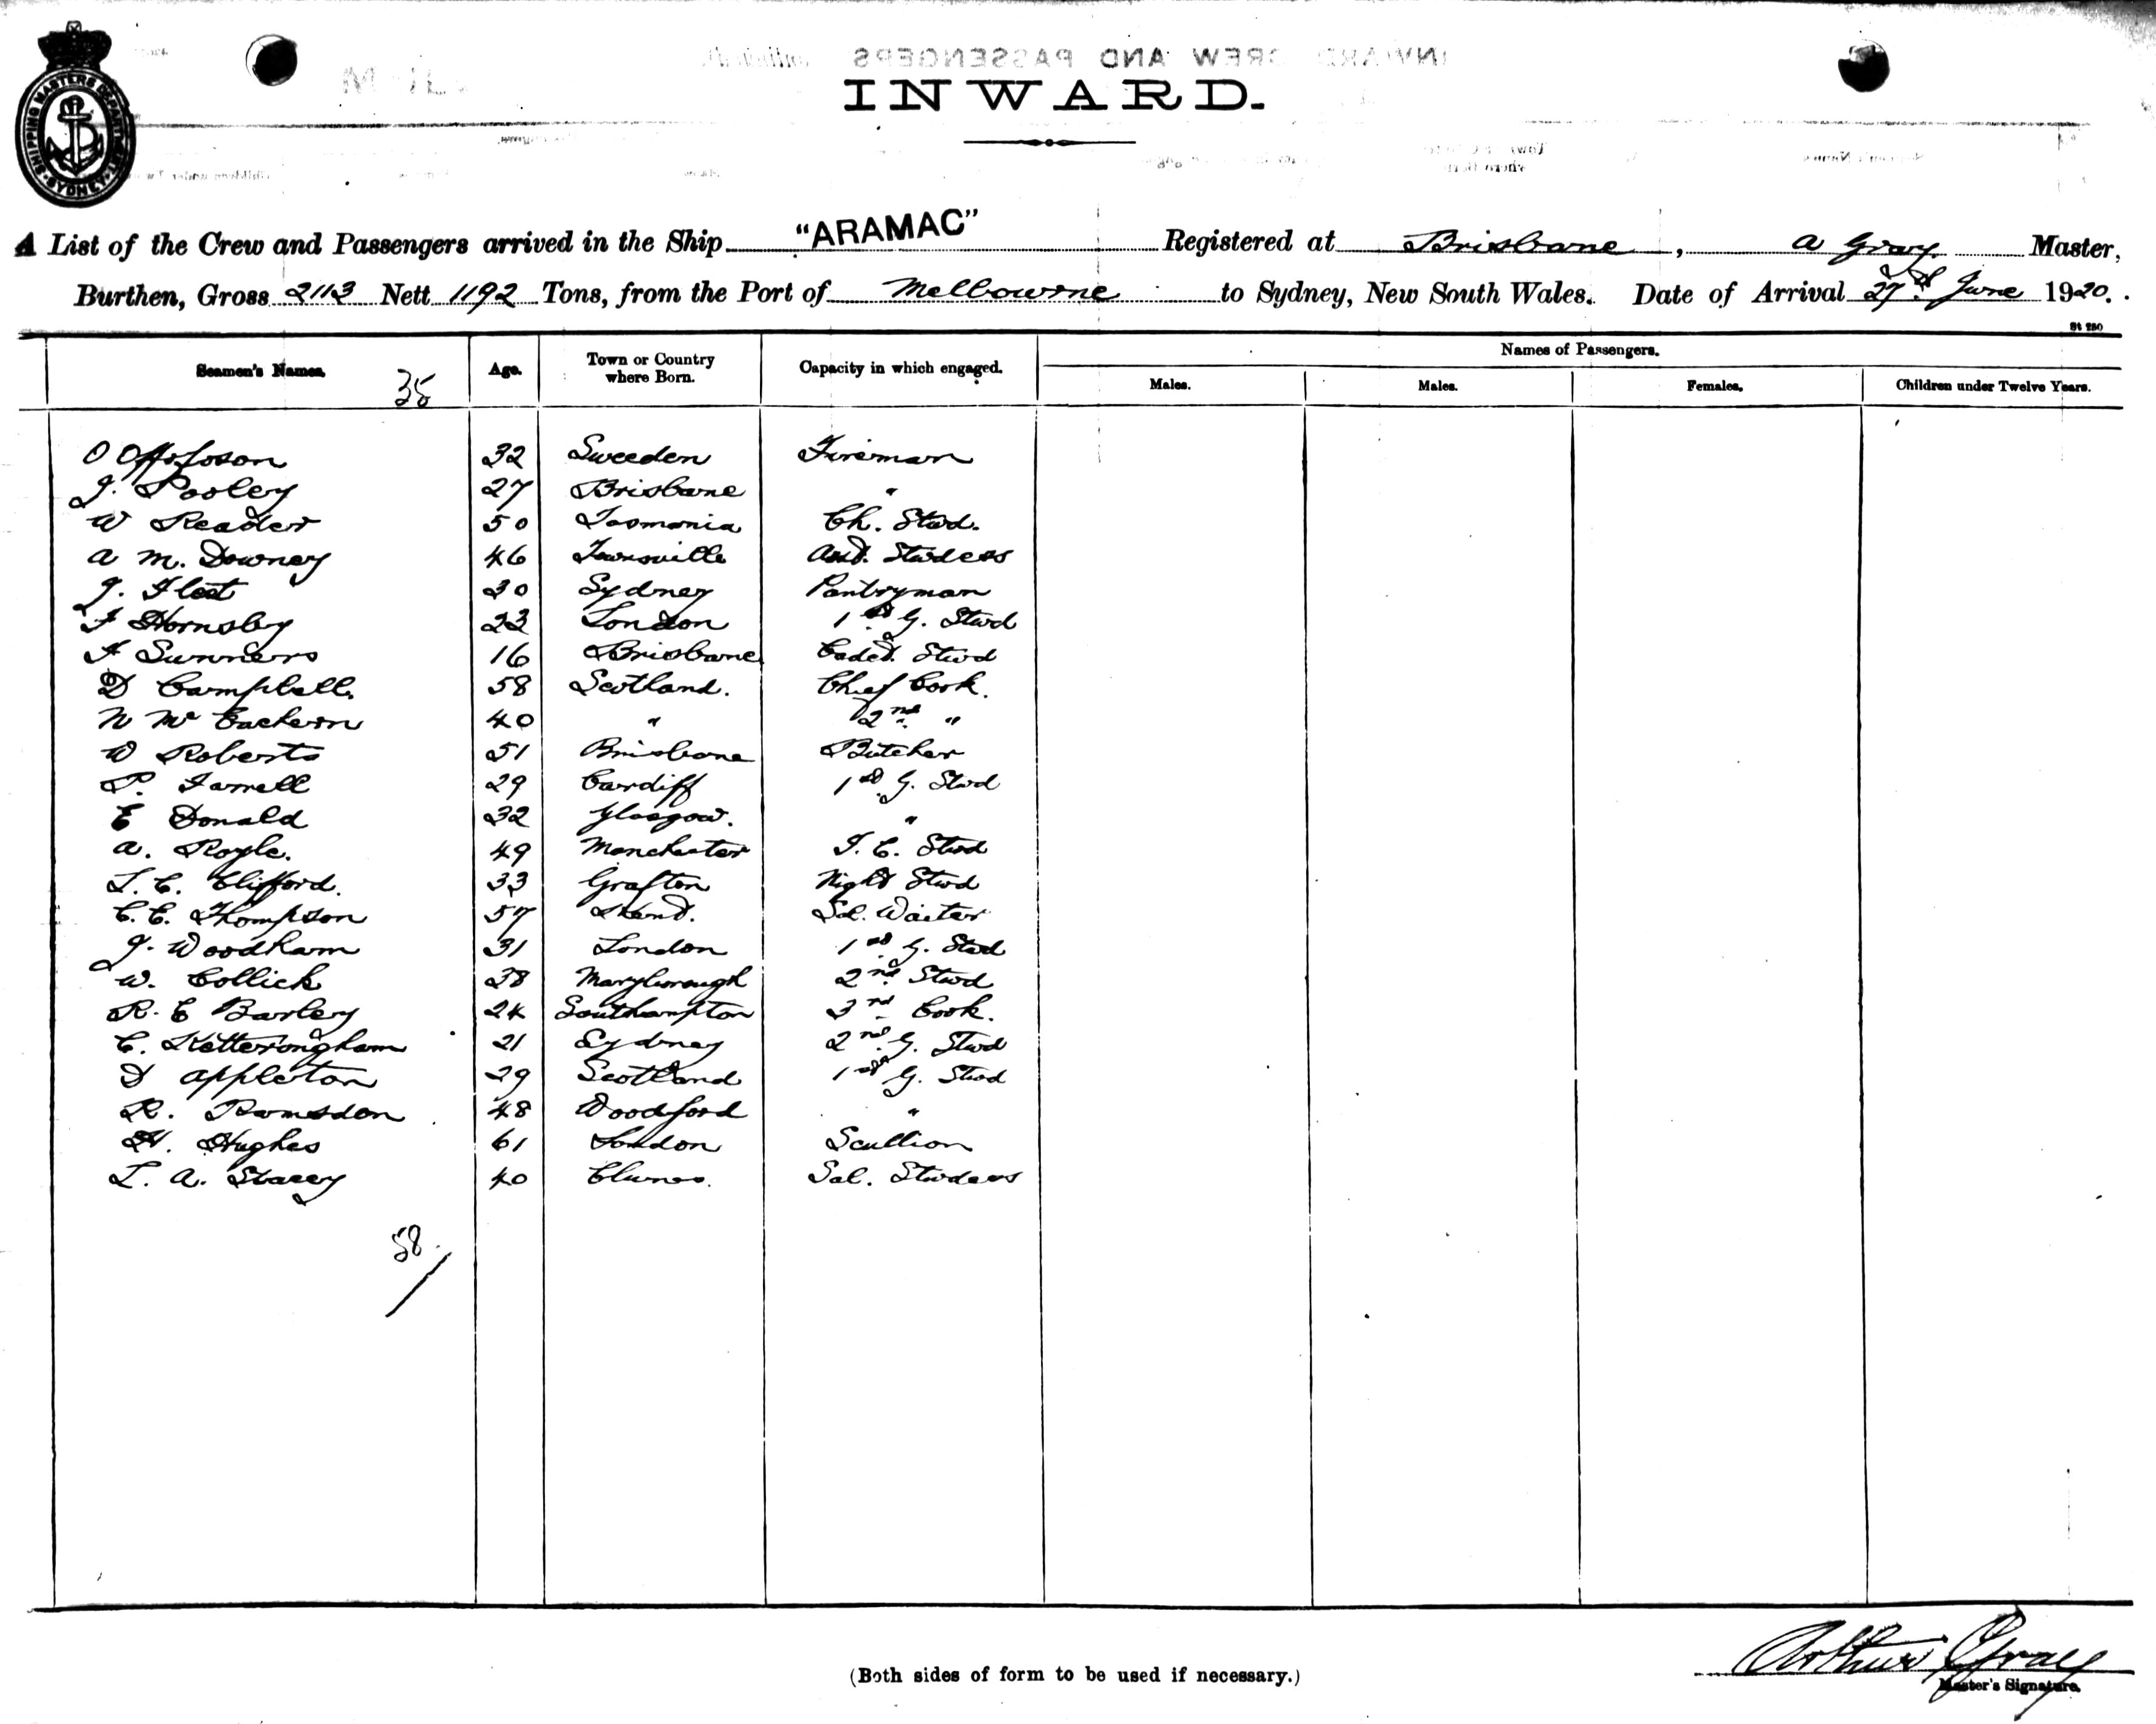 SHIPPING MASTERS DEPARTMENT SYDNEY
INWARD CREW AND PASSENGERS
INWARD.
A List of the Crew and Passengers arrived in the Ship "ARAMAC" Registered at Brisbane, A Gray Master,
Burthen, Gross 2113 Nett 1192 Tons, from the Port of Melbourne to Sydney, New South Wales. Date of Arrival 27th June 1920.
St 280
Seamen's Names. 35 Age. Town or Country where Born. Capacity in which engaged. Names of Passengers.
Males. Males. Females. Children under Twelve Years.
O 32 Sweeden Fireman
J. Pooley 27 Brisbane "
W Reader 50 Tasmania Ch. Stwd.
A M. Downey 46 Townsville Asst. Stwdess
J. Fleet 30 Sydney Pantryman
F Hornsby 23 London 1st G. Stwd
F Sunners 16 Brisbane Cadet Stwd
D Campbell. 58 Scotland. Chief Cook.
N McEachern 40 " 2nd "
W Roberts 51 Brisbane Butcher
P. Farrell 29 Cardiff 1st G. Stwd
E Donald 32 Glasgow. "
A. Royle. 49 Manchester F. C. Stwd
L. C. Clifford. 33 Grafton Night Stwd
C. C. Thompson 57 Sal. Waiter
J. Woodham 31 London 1st G. Stwd
W. Collick 38 Maryborough 2nd Stwd
R. E Barley 24 Southampton 3rd Cook.
C. Ketteringham 21 Sydney 2nd G. Stwd
D Appleton 29 Scotland 1st G. Stwd
R. Ramsden 48 Woodford "
H. Hughes 61 London Scullion
L. A. Stacey 40 Clunes. Sal. Stwdess
58
(Both sides of form to be used if necessary.)
Arthur Gray
Master's Signature.